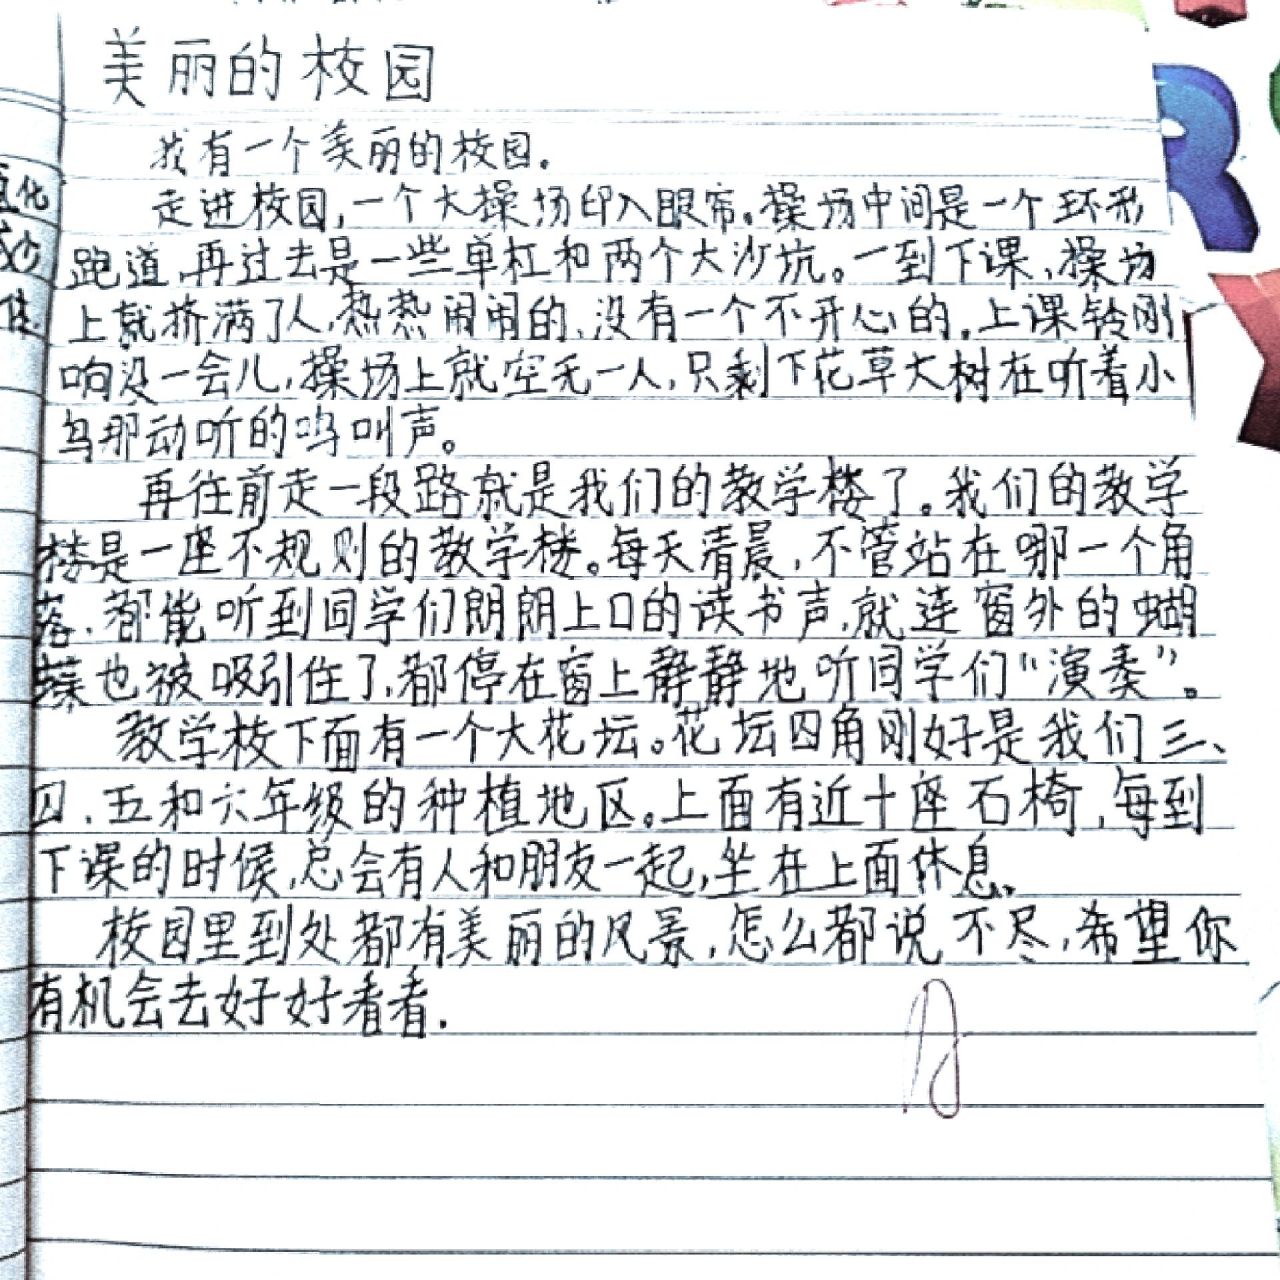 美丽的校园
我有一个美丽的校园。
走进校园,一个大操场印入眼帘。操场中间是一个环形
跑道,再过去是一些单杠和两个大沙坑。一到下课,操场
上就挤满了人,热热闹闹的,没有一个不开心的。上课铃刚
响没一会儿,操场上就空无一人,只剩下花草大树在听着小
鸟那动听的鸣叫声。
再往前走一段路就是我们的教学楼了。我们的教学
楼是一座不规则的教学楼。每天清晨,不管站在哪一个角
落,都能听到同学们朗朗上口的读书声,就连窗外的蝴
蝶也被吸引住了,都停在窗上静静地听同学们“演奏”。
教学校下面有一个大花坛。花坛四角刚好是我们三、
四、五和六年级的种植地区。上面有近十座石椅,每到
下课的时候,总会有人和朋友一起,坐在上面休息。
校园里到处都有美丽的风景,怎么都说不尽,希望你
有机会去好好看看.
R